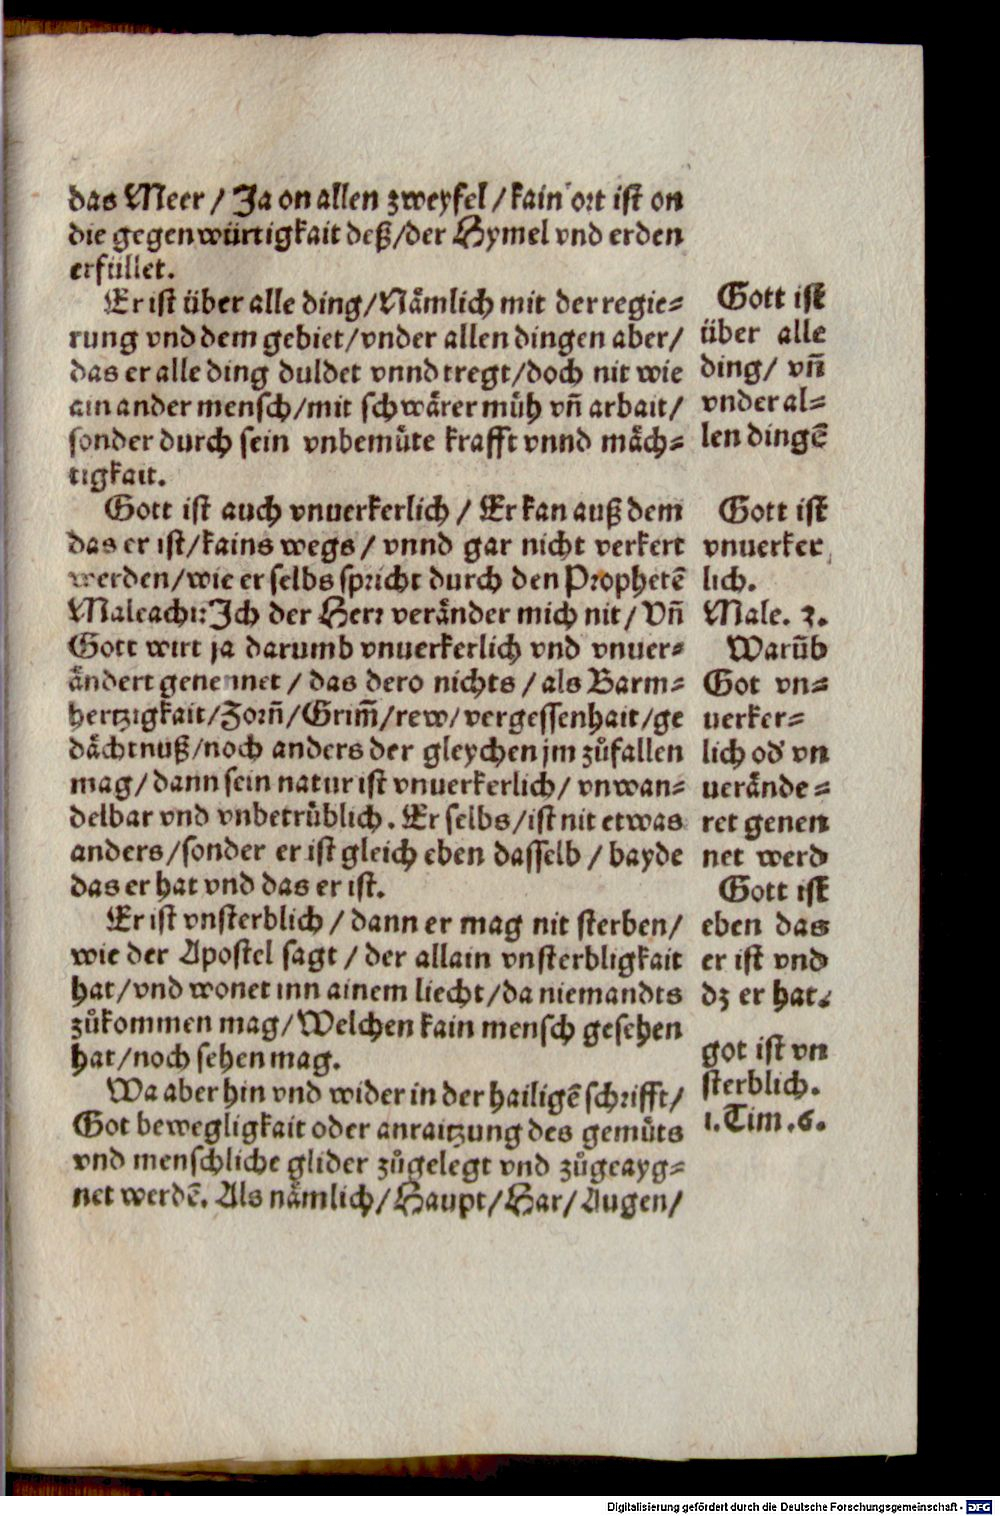 das Meer / Ja on allen zweyfel / kain ort ist on
die gegenwürtigkait deß / der Hymel vnd erden
erfüllet.
Er ist über alle ding / Nämlich mit der regie=
rung vnd dem gebiet / vnder allen dingen aber /
das er alle ding duldet vnnd tregt / doch nit wie
ain ander mensch / mit schwärer müh vñ arbait /
sonder durch sein vnbemüte krafft vnnd mäch=
tigkait.
Gott ist auch vnuerkerlich / Er kan auß dem
das er ist / kains wegs / vnnd gar nicht verkert
werden / wie er selbs spricht durch den Prophetẽ
Maleachi: Ich der Herr veränder mich nit / Vñ
Gott wirt ja darumb vnuerkerlich vnd vnuer=
ändert genennet / das dero nichts / als Barm=
hertzigkait / Zorñ / Grim̃ / rew / vergessenhait / ge
dächtnuß / noch anders der gleychen jm zůfallen
mag / dann sein natur ist vnuerkerlich / vnwan=
delbar vnd vnbetrüblich. Er selbs / ist nit etwas
anders / sonder er ist gleich eben dasselb / bayde
das er hat vnd das er ist.
Er ist vnsterblich / dann er mag nit sterben /
wie der Apostel sagt / der allain vnsterbligkait
hat / vnd wonet inn ainem liecht / da niemandts
zůkommen mag / Welchen kain mensch gesehen
hat / noch sehen mag.
Wa aber hin vnd wider in der hailigẽ schrifft /
Got bewegligkait oder anraitzung des gemüts
vnd menschliche glider zůgelegt vnd zůgeayg=
net werdẽ. Als nämlich / Haupt / Har / Augen /
Gott ist
über alle
ding / vñ
vnder al=
len dingẽ
Gott ist
vnuerker
lich.
Male. 3.
Warũb
Got vn=
uerker=
lich od' vn
uerände=
ret genen
net werd
Gott ist
eben das
er ist vnd
dz er hat.
got ist vn
sterblich.
1. Tim. 6.
Digitalisierung gefördert durch die Deutsche Forschungsgemeinschaft - DFG